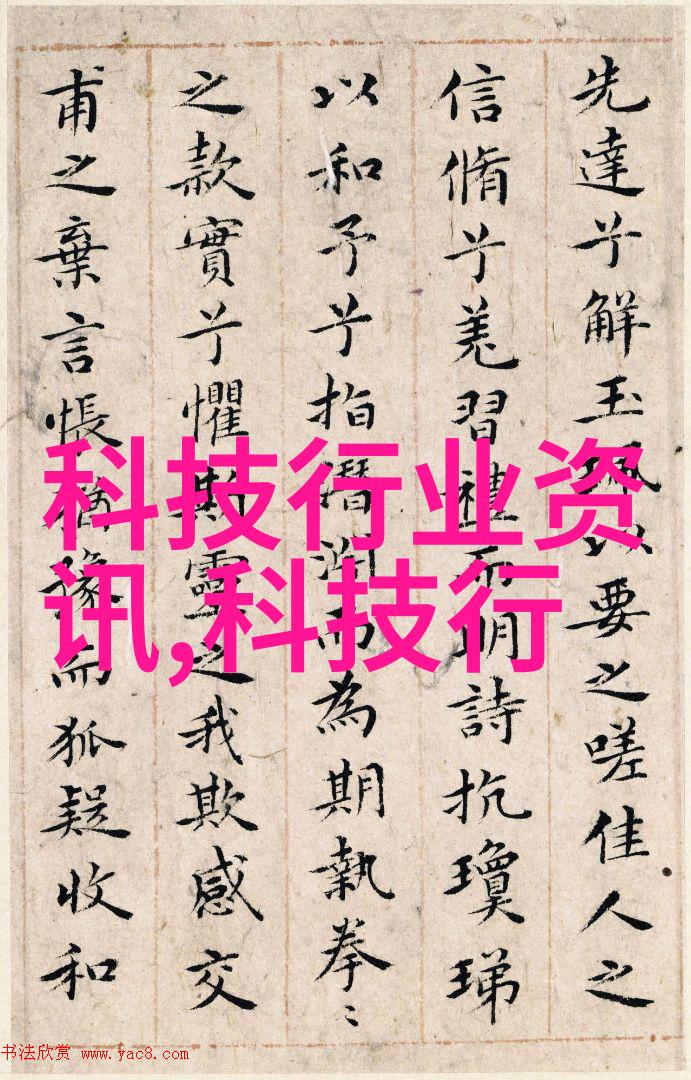 先達兮解玉珮以要之嗟佳人之
信脩兮羌習禮而明詩抗瓊珶
以和予兮指潛淵而為期執拳〻
之款實兮懼斯靈之我欺感交
甫之棄言悵猶豫而狐疑收和
科技行业资
讯,科技行
书法欣赏 www.yac8.com